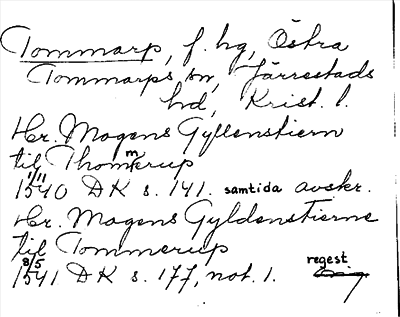 Tommarp, f. hg, Östra
Tommarps sn, Järrestads
hd, Krist. l.
Hr. Mogens Gyllenstiern
til Thommerup
1/11 1540 DK s. 141. samtida avskr.
Hr. Mogens Gyldenstierne
til Tommerup
8/5 1541 DK s. 177, not. 1. regest